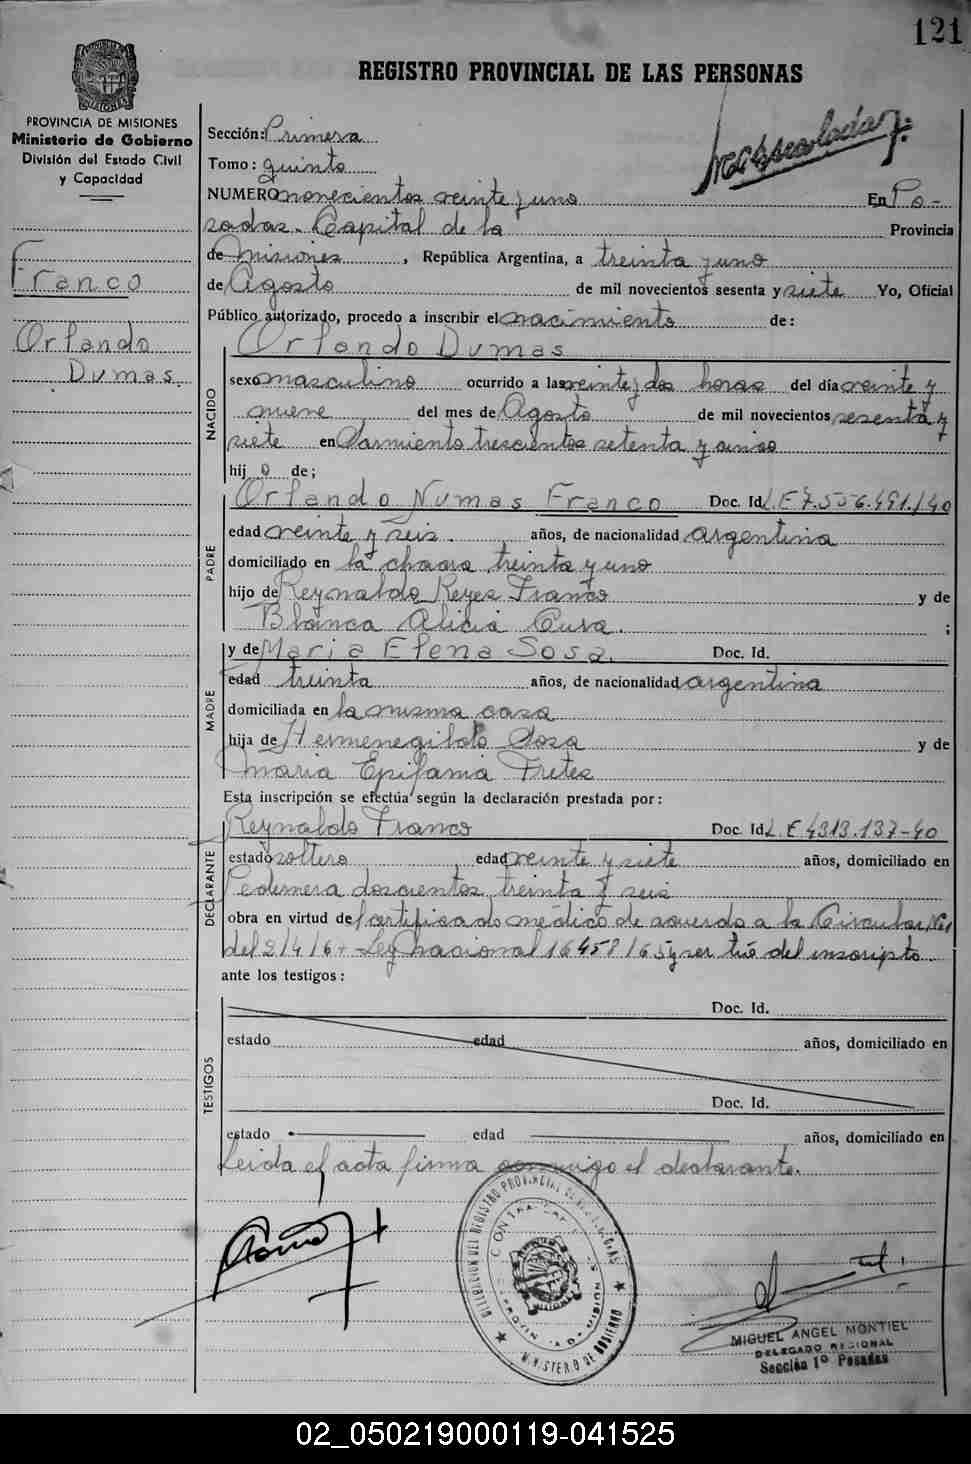 121
REGISTRO PROVINCIAL DE LAS PERSONAS
PROVINCIA DE MISIONES
Ministerio de Gobierno
División del Estado Civil
y Capacidad
Franco
Orlando
Dumas.
Sección: Primera
Tomo: quinto
NUMERO novecientos veinte y uno En Po-
sadas. Capital de la Provincia
de Misiones, República Argentina, a treinta y uno
de Agosto de mil novecientos sesenta y siete Yo, Oficial
Público autorizado, procedo a inscribir el nacimiento de:
NACIDO
Orlando Dumas
sexo masculino ocurrido a las veinte y dos horas del día veinte y
nueve del mes de Agosto de mil novecientos sesenta y
siete en Sarmiento trescientos setenta y cinco
hijo de;
PADRE
Orlando Numas Franco Doc. Id. L.E 7.556.491/40
edad veinte y seis. años, de nacionalidad argentina
domiciliado en la chacra treinta y uno
hijo de Reynaldo Reyes Franco y de
Blanca Alicia Cuva. ;
MADRE
y de Maria Elena Sosa. Doc. Id.
edad treinta años, de nacionalidad argentina
domiciliada en la misma casa
hija de Hermenegildo Sosa y de
Maria Epifania Fretes
Esta inscripción se efectúa según la declaración prestada por:
DECLARANTE
Reynaldo Franco Doc. Id. L.E 4313.137-40
estado soltero edad veinte y siete años, domiciliado en
Pedernera doscientos treinta y seis
obra en virtud de certificado médico de acuerdo a la Circular
del 2/4/6 Ley Nacional 16458/65 y ser tio del inscripto
ante los testigos:
TESTIGOS
Doc. Id.
estado edad años, domiciliado en
Doc. Id.
estado edad años, domiciliado en
Leida el acta firma conmigo el declarante.
DELEGACION DEL REGISTRO PROVINCIAL DE LAS PERSONAS
MINISTERIO DE GOBIERNO
MIGUEL ANGEL MONTIEL
DELEGADO REGIONAL
Sección 1º Posadas
02_050219000119-041525